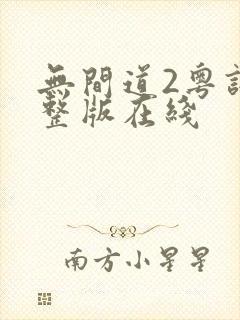 無間道2粵
整版在綫
南方小星星